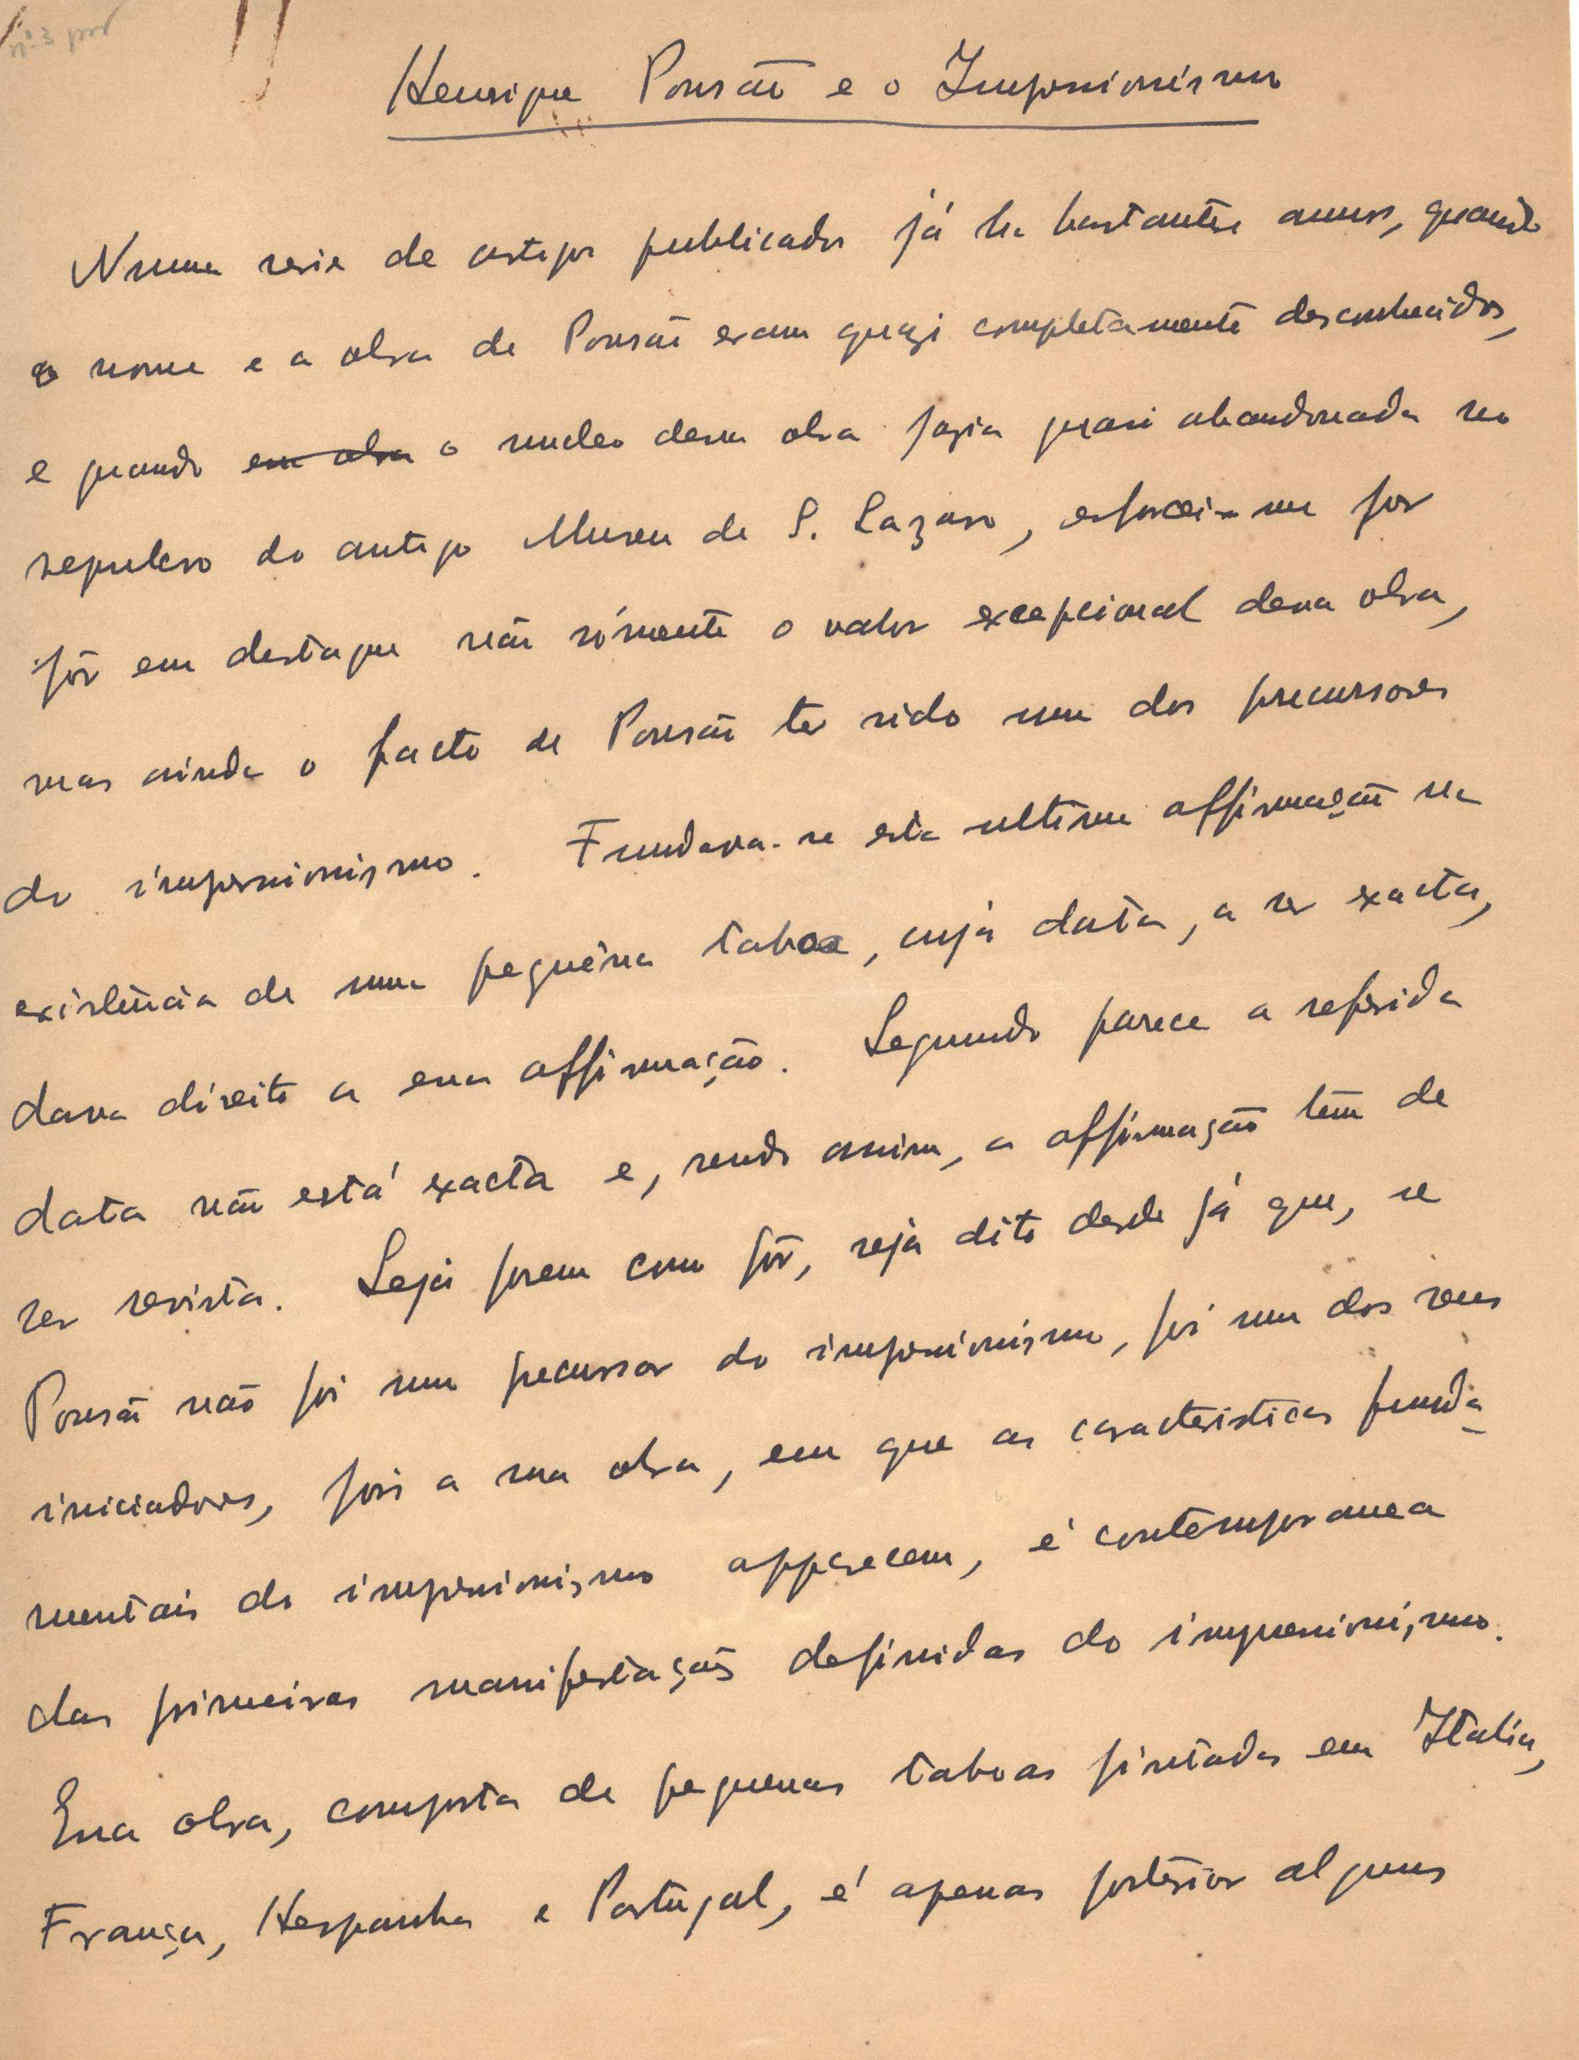 nº 3
Henrique Pousão e o Impressionismo
Numa serie de artigos publicados já ha bastantes annos, quando
o nome e a obra de Pousão eram quazi completamente desconhecidos,
e quando essa obra o nucleo dessa obra jazia quasi abandonada no
sepulcro do antigo Museu de S. Lazaro, esforcei-me por
pôr em destaque não sómente o valor excepcional dessa obra,
mas ainda o facto de Pousão ter sido um dos precursores
do impressionismo. Fundava-se esta ultima affirmação na
existência de uma pequena taboa, cuja data, a ser exacta,
dava direito a essa affirmação. Segundo parece a referida
data não está exacta e, sendo assim, a affirmação tem de
ser revista. Seja porem como fôr, seja dito desde já que, se
Pousão não foi um precursor do impressionismo, foi um dos seus
iniciadores, pois a sua obra, em que as caracteristicas funda-
mentais do impressionismo apparecem, é contemporanea
das primeiras manifestações definidas do impressionismo.
Essa obra, composta de pequenas taboas pintadas em Italia,
França, Hespanha e Portugal, é apenas posterior alguns